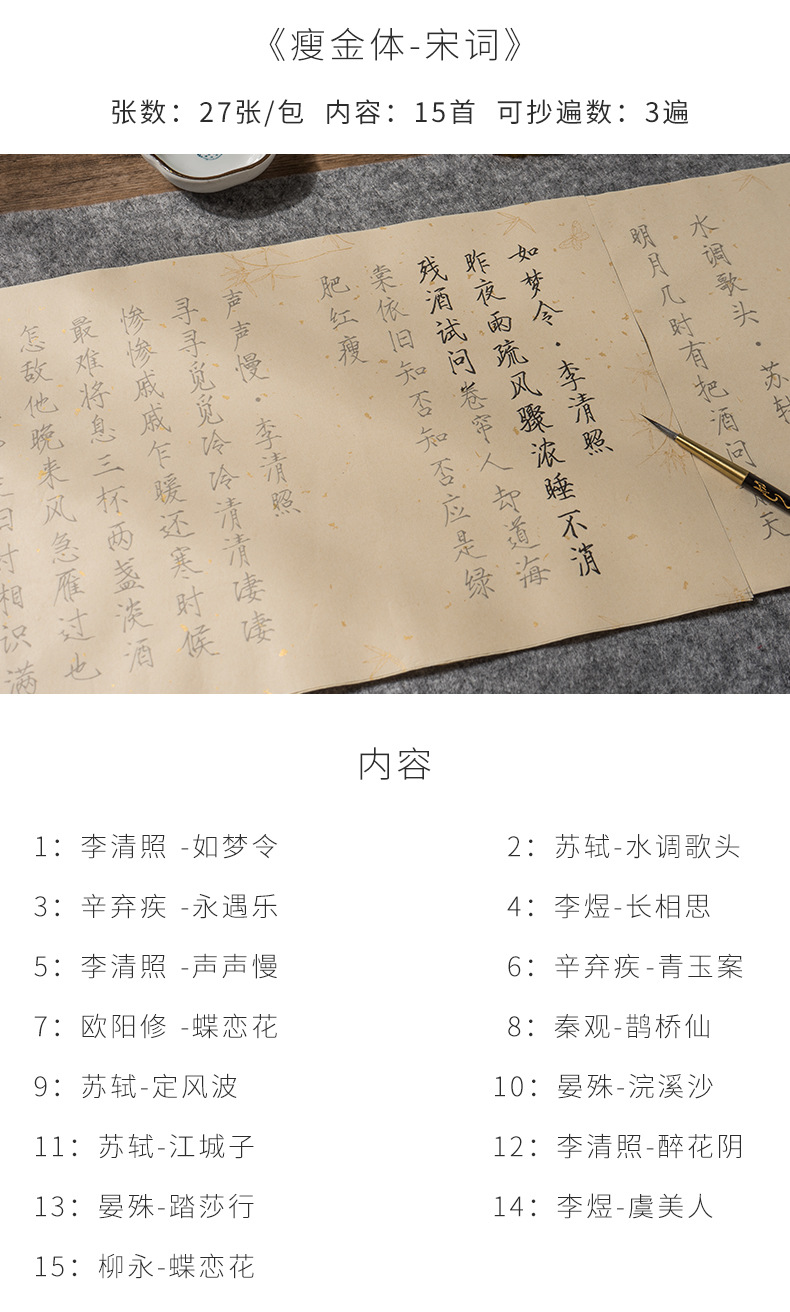 《瘦金体-宋词》
张数：27张/包 内容：15首 可抄遍数：3遍
水调歌头·苏轼
明月几时有把酒问天
如梦令·李清照
昨夜雨疏风骤浓睡不消
残酒试问卷帘人却道海
棠依旧知否知否应是绿
肥红瘦
声声慢·李清照
寻寻觅觅冷冷清清凄凄
惨惨戚戚乍暖还寒时候
最难将息三杯两盏淡酒
怎敌他晚来风急雁过也
旧时相识满
内容
1：李清照 -如梦令
2：苏轼-水调歌头
3：辛弃疾 -永遇乐
4：李煜-长相思
5：李清照 -声声慢
6：辛弃疾-青玉案
7：欧阳修 -蝶恋花
8：秦观-鹊桥仙
9：苏轼-定风波
10：晏殊-浣溪沙
11：苏轼-江城子
12：李清照-醉花阴
13：晏殊-踏莎行
14：李煜-虞美人
15：柳永-蝶恋花